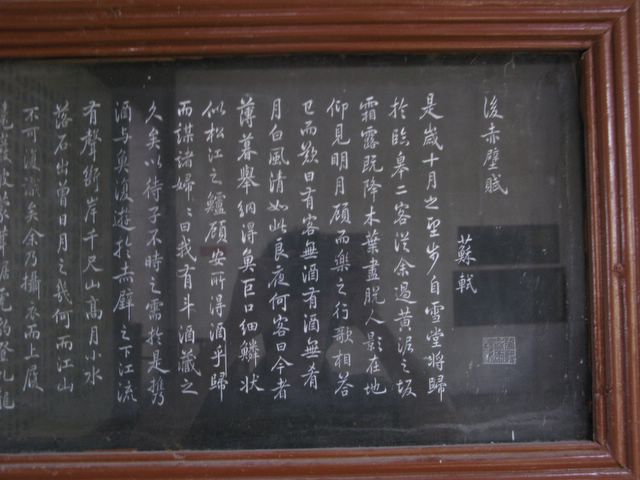 後赤壁賦
蘇軾
是歲十月之朢步自雪堂將歸
於臨皋二客從余過黃泥之坂
霜露既降木葉盡脫人影在地
仰見明月顧而樂之行歌相答
已而歎曰有客無酒有酒無肴
月白風清如此良夜何客曰今者
薄暮舉網得魚巨口細鱗狀
似松江之鱸顧安所得酒乎歸
而謀諸婦〻曰我有斗酒藏之
久矣以待子不時之需於是携
酒與魚復遊於赤壁之下江流
有聲斷岸千尺山高月小水
落石出曾日月之幾何而江山
不可復識矣余乃攝衣而上履
巉巖披蒙茸踞虎豹登虬龍